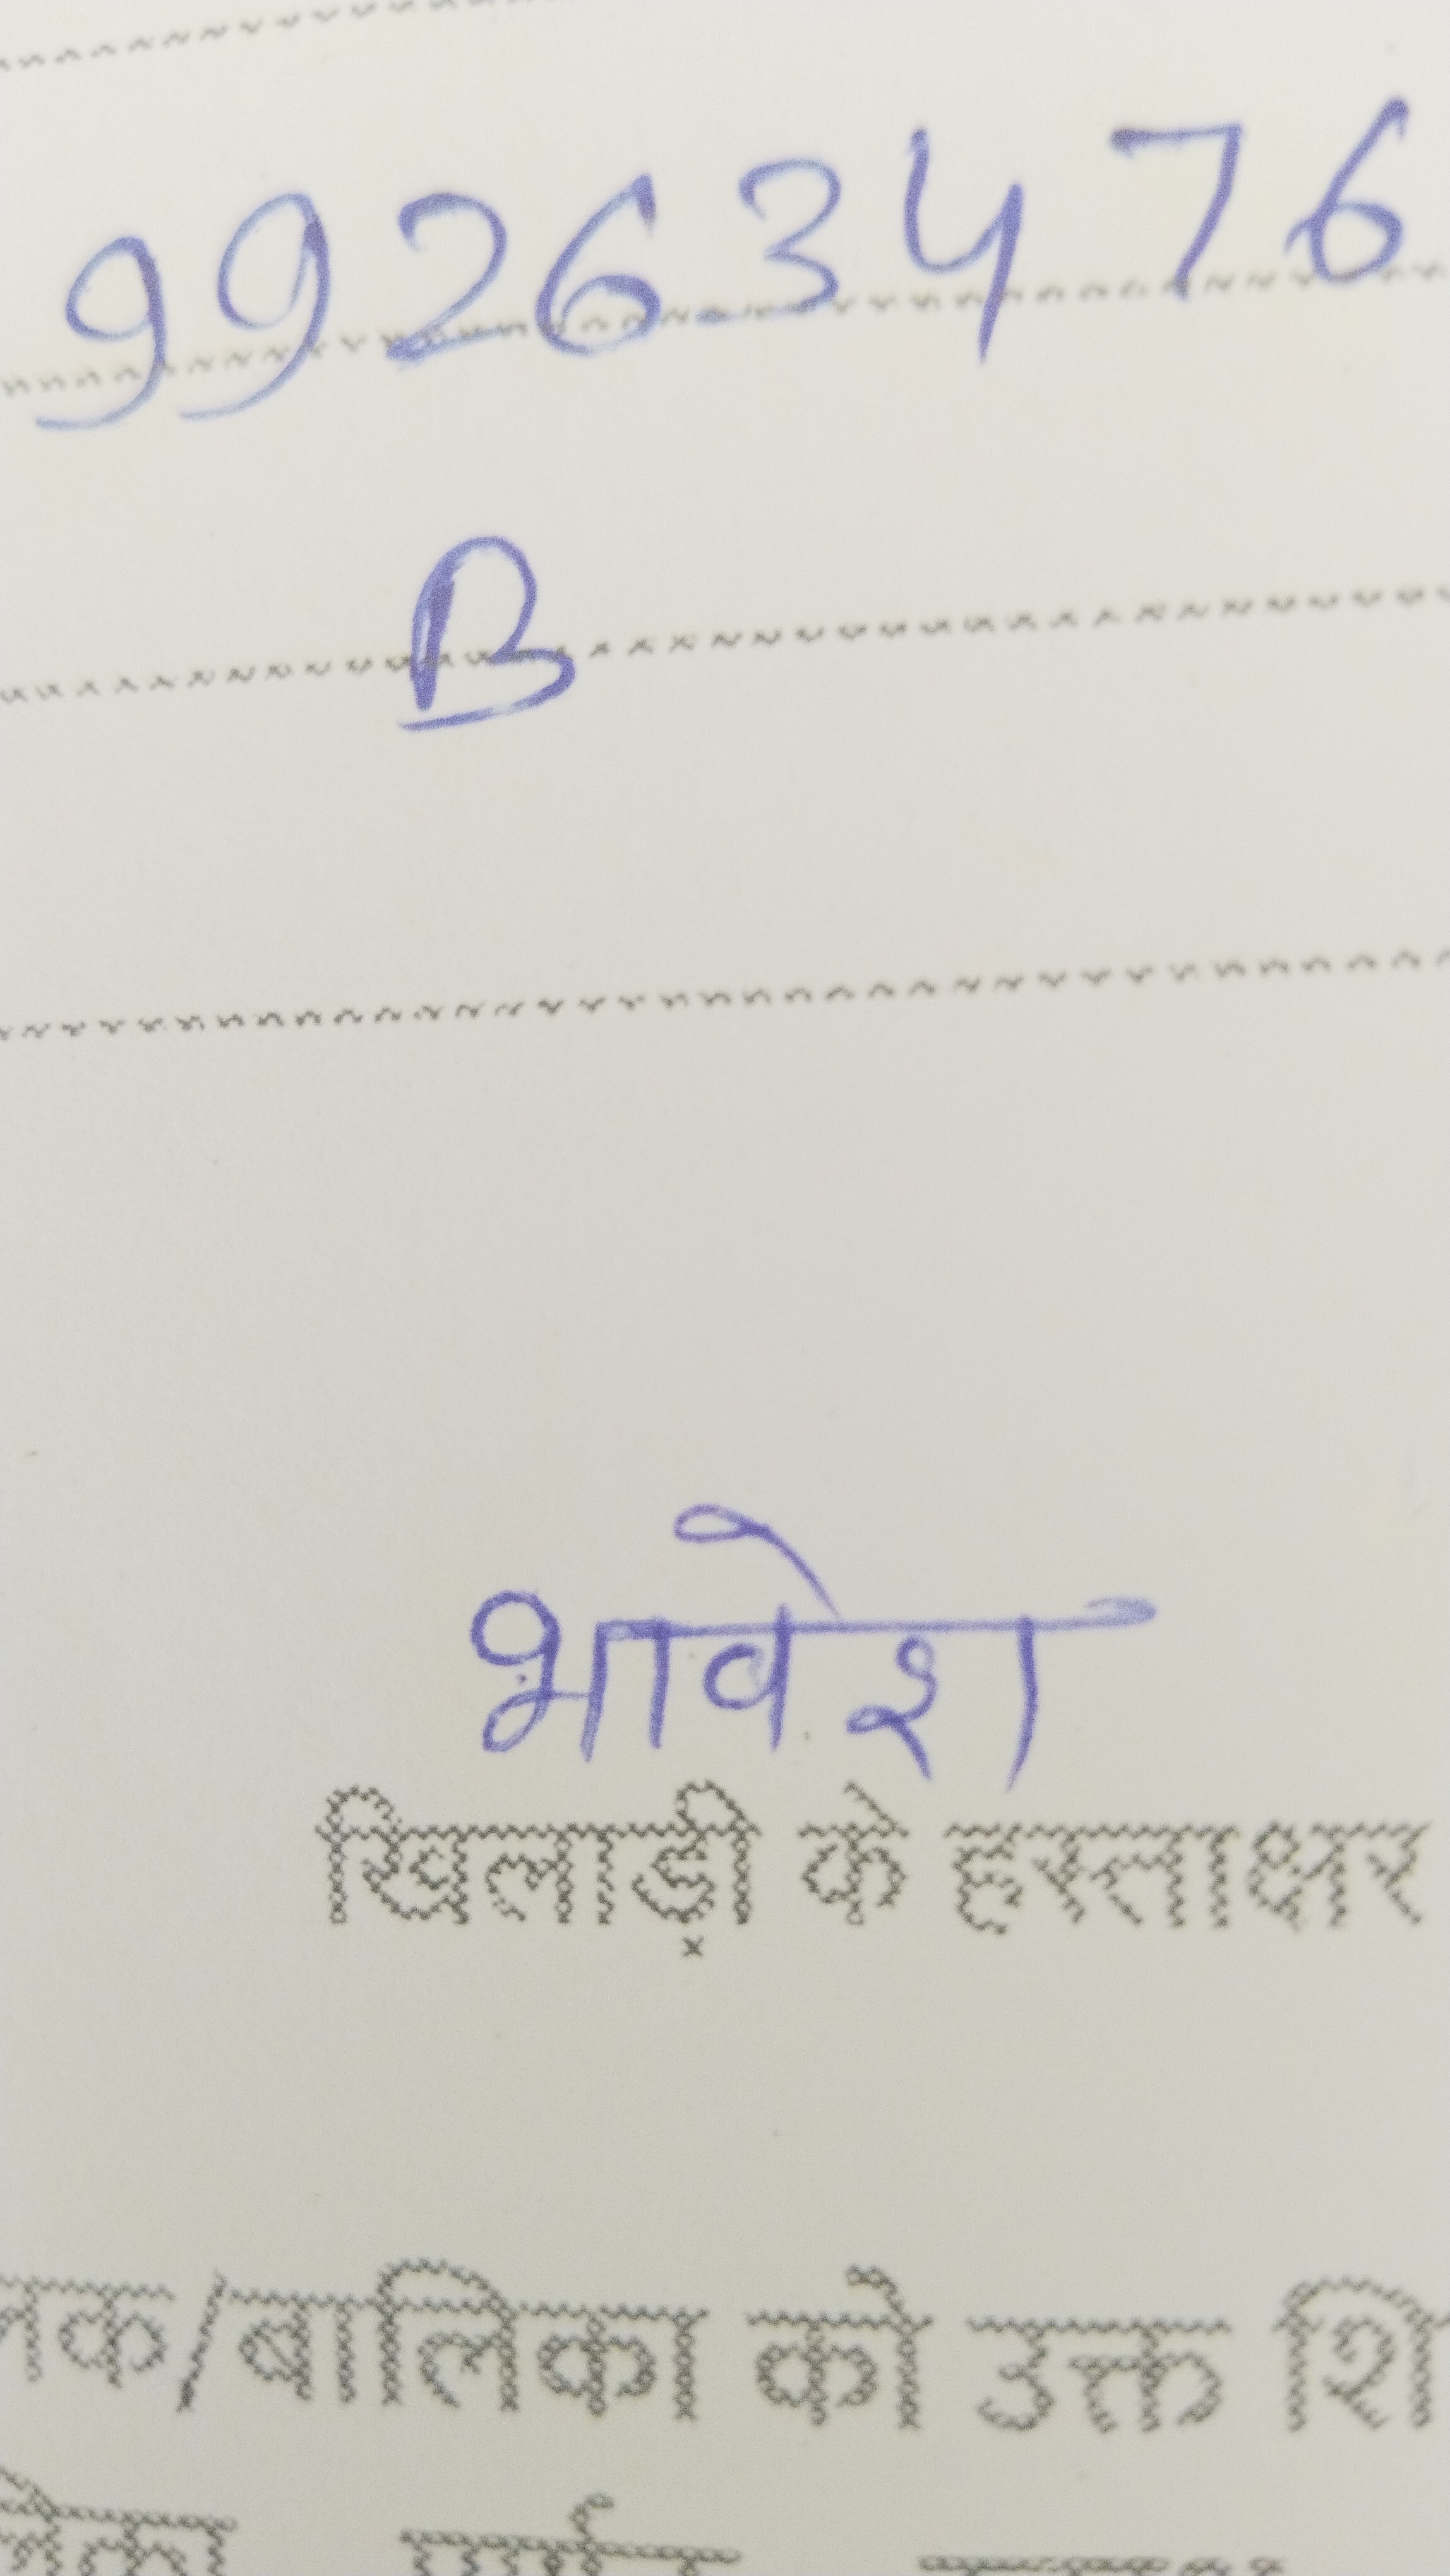 99263476
B
भावेश
खिलाड़ी के हस्ताक्षर
लक/बालिका को उक्त शि